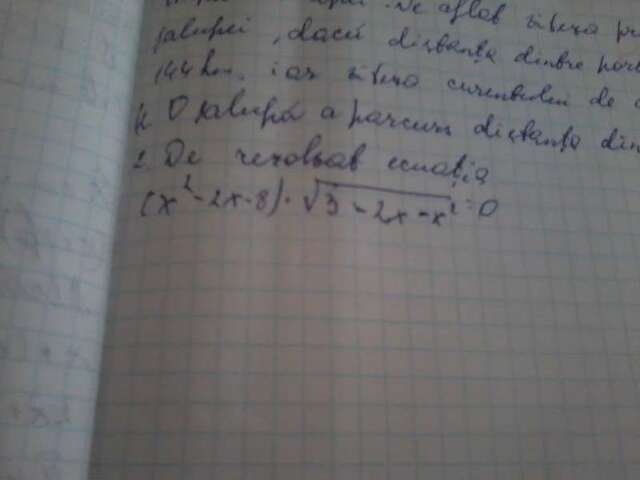 De aflat viteza
șalupei, dacă distanța dintre
144 km, iar viteza curentului de
O șalupă a parcurs distanța din
2. De rezolvat ecuația
(x² - 2x - 8) · √3 - 2x - x² = 0